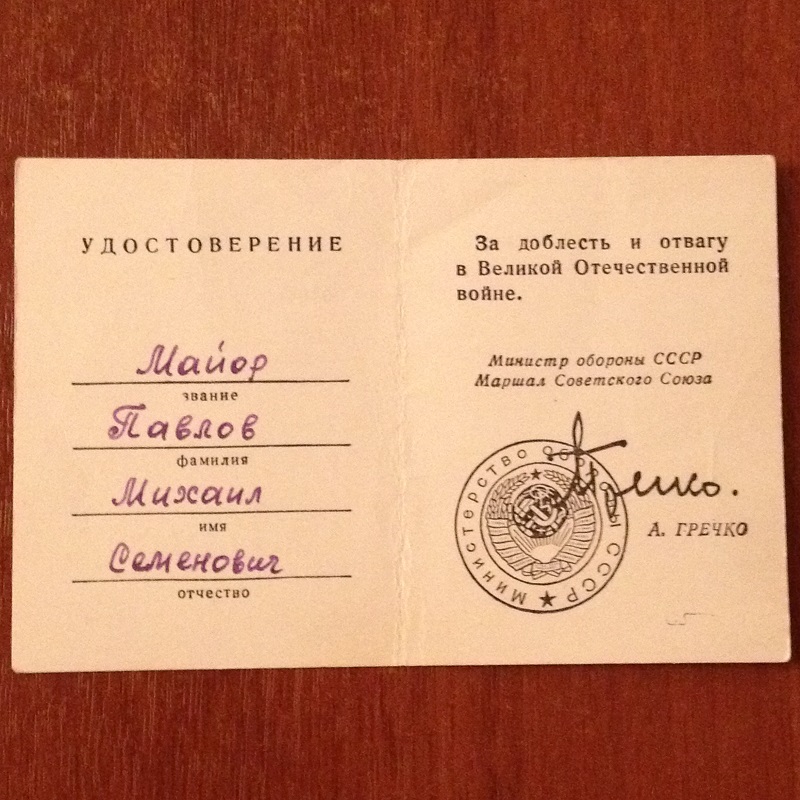 УДОСТОВЕРЕНИЕ
Майор
звание
Павлов
фамилия
Михаил
имя
Семенович
отчество
За доблесть и отвагу
в Великой Отечественной
войне.
Министр обороны СССР
Маршал Советского Союза
Гречко.
Министерство Обороны СССР
А. ГРЕЧКО